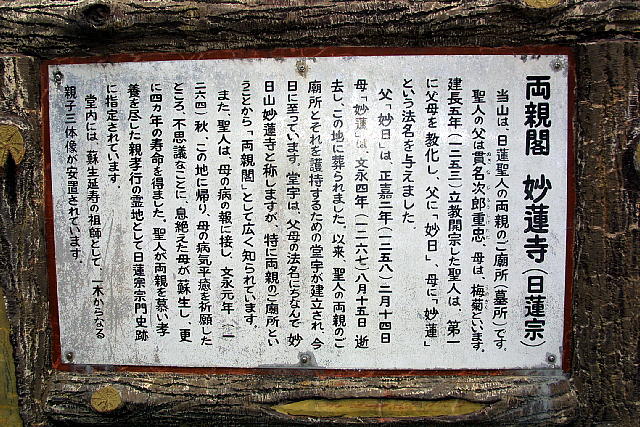 両親閣 妙蓮寺(日蓮宗)
当山は、日蓮聖人の両親のご廟所(墓所)です。
聖人の父は貫名次郎重忠、母は、梅菊といいます。
建長五年(一二五三)立教開宗した聖人は、第一
に父母を教化し、父に「妙日」、母に「妙蓮」
という法名を与えました。
父「妙日」は、正嘉二年(一二五八)二月十四日
母「妙蓮」は、文永四年(一二六七)八月十五日 逝
去し、この地に葬られました。以来、聖人の両親のご
廟所とそれを護持するための堂宇が建立され、今
日に至っています。堂宇は、父母の法名にちなんで 妙
日山妙蓮寺と称しますが、特に両親のご廟所とい
うことから、「両親閣」として広く知られています。
また 聖人は、母の病の報に接し、文永元年(一
二六四)秋、この地に帰り、母の病気平癒を祈願した
ところ、不思議なことに、息絶えた母が「蘇生し、更
に四ヵ年の寿命を得ました。聖人が両親を慕い孝
養を尽した親孝行の霊地として日蓮宗宗門史跡
に指定されています。
堂内には、蘇生延寿の祖師として、一木からなる
親子三体像が安置されています。